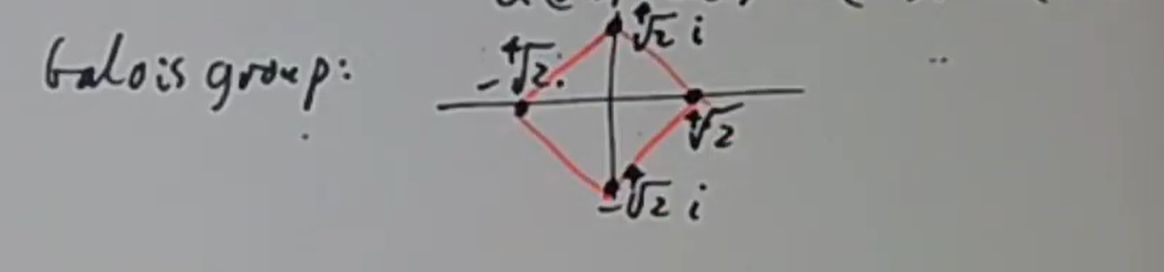 Galois group:
∜2 i
-∜2
∜2
-∜2 i